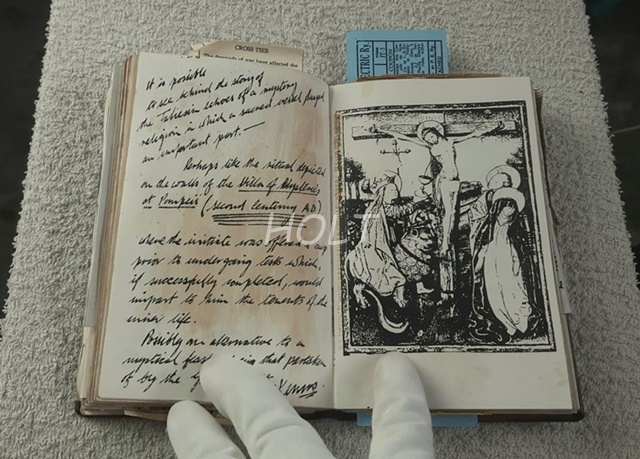 CROSS TIES
ECTRIC Ry.
It is possible
to see behind the story of
the Taliesin echoes of a mystery
religion in which a sacred vessel played
an important part. —
Perhaps like the ritual depicted
on the walls of the Villa of
at Pompeii (second century AD)
where the initiate was offered a cup
prior to undergoing tests which,
if successfully completed, would
impart to him the tenents of the
inner life.
Possibly an alternative to a
mystical feast that partaken
of by the
HOLT